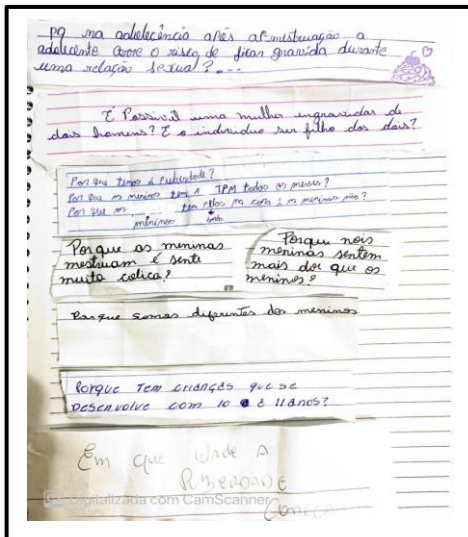 Pq na adolecência após a mestruação a
adolecente corre o risco de ficar gravida durante
uma relação sexual?...
É Possivil uma mulher ingravidar de
dois homens? E o individuo ser filho dos dois?
Por que temos a Puberdade?
Por que as meninas tem a TPM todos os meses?
Por que os tem pelos na cara e as meninas não?
meninos
Por que as meninas
mestruam é sente
muita colica?
Porque nois
meninas sentem
mais dor que os
meninos?
Porque somos diferentes dos meninos
Porque Tem crianças que se
Desenvolve com 10 e 11 anos?
Em que idade A
PUBERDADE
Começa
Digitalizada com CamScanner